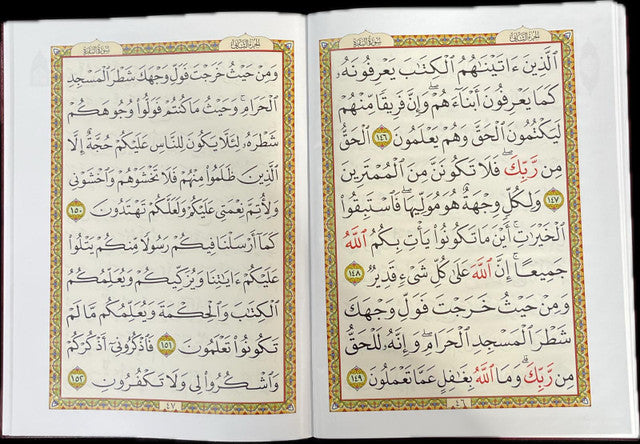 الجزء الثاني
سورة البقرة
الَّذِينَ ءَاتَيْنَٰهُمُ الْكِتَٰبَ يَعْرِفُونَهُۥ
كَمَا يَعْرِفُونَ أَبْنَآءَهُمْ ۖ وَإِنَّ فَرِيقًا مِّنْهُمْ
لَيَكْتُمُونَ الْحَقَّ وَهُمْ يَعْلَمُونَ ١٤٦ الْحَقُّ
مِن رَّبِّكَ ۖ فَلَا تَكُونَنَّ مِنَ الْمُمْتَرِينَ
١٤٧ وَلِكُلٍّ وِجْهَةٌ هُوَ مُوَلِّيهَا ۖ فَاسْتَبِقُوا۟
الْخَيْرَٰتِ ۚ أَيْنَ مَا تَكُونُوا۟ يَأْتِ بِكُمُ اللَّهُ
جَمِيعًا ۚ إِنَّ اللَّهَ عَلَىٰ كُلِّ شَىْءٍ قَدِيرٌ ١٤٨
وَمِنْ حَيْثُ خَرَجْتَ فَوَلِّ وَجْهَكَ
شَطْرَ الْمَسْجِدِ الْحَرَامِ ۖ وَإِنَّهُۥ لَلْحَقُّ
مِن رَّبِّكَ ۗ وَمَا اللَّهُ بِغَٰفِلٍ عَمَّا تَعْمَلُونَ ١٤٩
٤٦
الجزء الثاني
سورة البقرة
وَمِنْ حَيْثُ خَرَجْتَ فَوَلِّ وَجْهَكَ شَطْرَ الْمَسْجِدِ
الْحَرَامِ ۚ وَحَيْثُ مَا كُنتُمْ فَوَلُّوا۟ وُجُوهَكُمْ
شَطْرَهُۥ لِئَلَّا يَكُونَ لِلنَّاسِ عَلَيْكُمْ حُجَّةٌ إِلَّا
الَّذِينَ ظَلَمُوا۟ مِنْهُمْ فَلَا تَخْشَوْهُمْ وَاخْشَوْنِى
وَلِأُتِمَّ نِعْمَتِى عَلَيْكُمْ وَلَعَلَّكُمْ تَهْتَدُونَ ١٥٠
كَمَآ أَرْسَلْنَا فِيكُمْ رَسُولًا مِّنكُمْ يَتْلُوا۟
عَلَيْكُمْ ءَايَٰتِنَا وَيُزَكِّيكُمْ وَيُعَلِّمُكُمُ
الْكِتَٰبَ وَالْحِكْمَةَ وَيُعَلِّمُكُم مَّا لَمْ
تَكُونُوا۟ تَعْلَمُونَ ١٥١ فَاذْكُرُونِىٓ أَذْكُرْكُمْ
وَاشْكُرُوا۟ لِى وَلَا تَكْفُرُونِ ١٥٢
٤٧